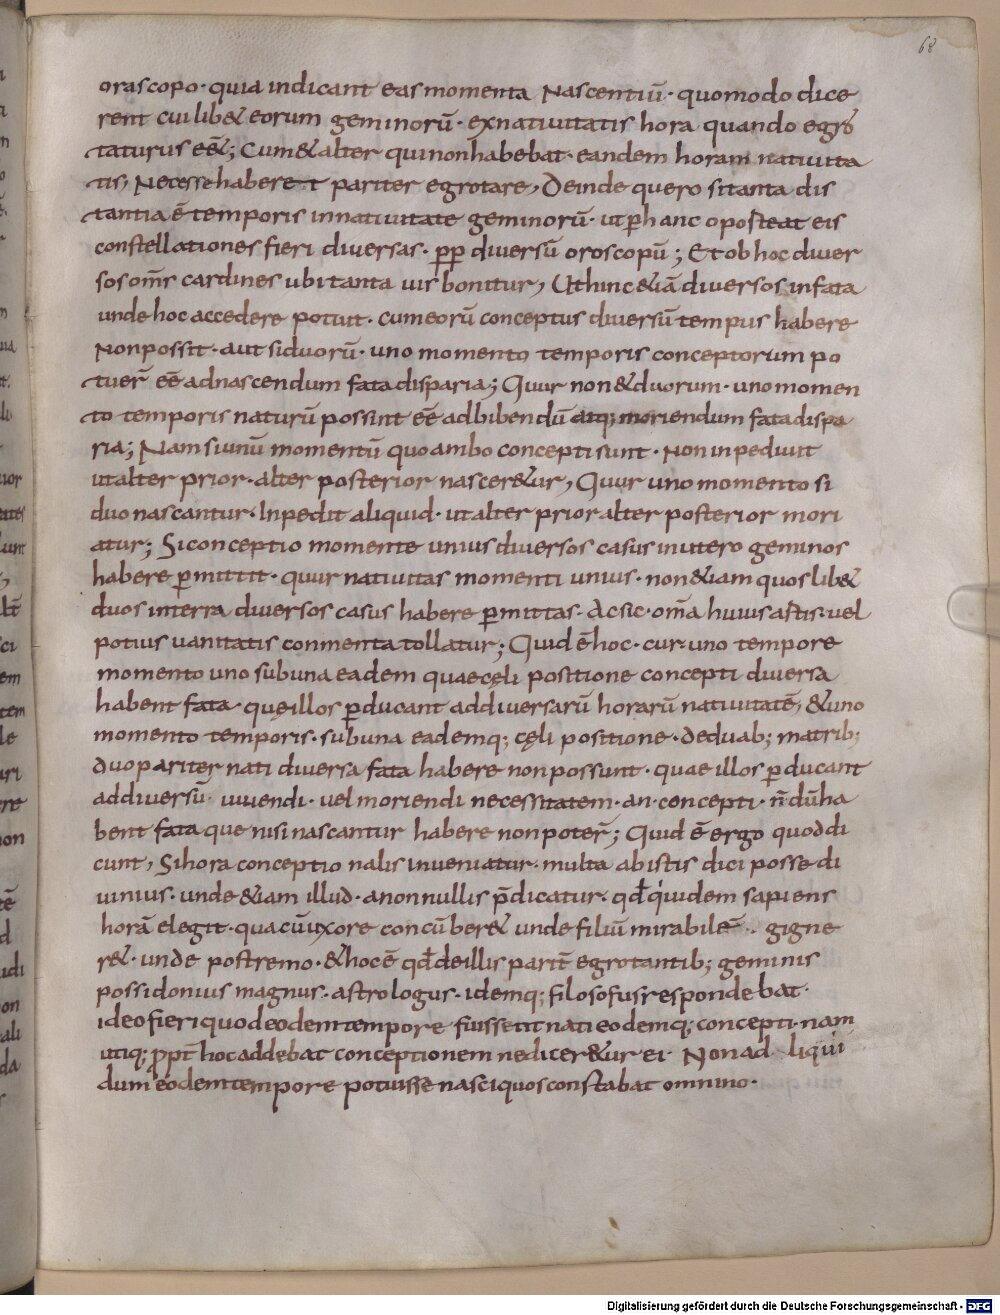 68
orascopo· quia indicant eas momenta Nascentiū· quomodo dice
rent cui lib& eorum geminorū· ex nativitatis hora quando egro
taturus eē&; Cum & alter qui non habebat· eandem horam nativita
tis, Necesse haberet pariter egrotare, Deinde quero si tanta dis
tantia ē temporis in nativitate geminorū· ut p̄ hanc oposteat eis
constellationes fieri diversas· pp̄ diversū oroscopū; Et ob hoc diver
sos om̄s cardines ubi tanta uis bonitur, Ut hinc &iā diversos in fata
unde hoc accedere potuit· cum eorū conceptus diversū tempus habere
Non possit· aut si duorū· uno momento temporis conceptorum po
tuer̄ eē ad nascendum fata disparia; Quur non & duorum· uno momen
to temporis naturū possint eē ad bibendū atq; moriendum fata dispa
ria; Nam si unū momentū quo ambo concepti sunt· Non inpediuit
ut alter prior· alter posterior nascer&ur, Quur uno momento si
duo nascantur· Inpedit aliquid· ut alter prior alter posterior mori
atur; Si conceptio momente unius diversos casus in utero geminos
habere p̄mittit· quur nativitas momenti unius· non &iam quos lib&
duos in terra diversos casus habere p̄mittas· Ac sic· om̄a huius astis· vel
potius vanitatis conmenta tollatur; Quid ē hoc· cur· uno tempore
momento uno sub una eadem quae cęli positione concepti diversa
habent fata· quę illos p̄ducant ad diversarū horarū nativitatē, & uno
momento temporis· sub una eademq; cęli positione· de duab; matrib;
duo pariter nati diversa fata habere non possunt· quae illos p̄ducant
ad diversū· uiuendi· vel moriendi necessitatem· an· concepti· n̄dū ha
bent fata que nisi nascantur habere non poter̄; Quid ē ergo quod di
cunt, Si hora conceptionalis inveniatur· multa ab istis dici posse di
uinius· unde &iam illud· a nonnullis p̄dicatur· qd̄ quidem sapiens
horā elegit· qua cū uxore concūber& unde filiū mirabilē·· gigne
r&· unde postremo· & hoc ē qd̄ de illis parit̄ egrotantib; geminis
possidonius magnus· astrologus· idemq; filosofus respondebat·
ideo fieri quod eodem tempore fuissetit nati eodemq; concepti· nam
utiq; ppt̄ hoc addebat conceptionem ne dicer&ur ei· Non ad liqui
dum eodem tempore potuisse nasci quos constabat omnino·
Digitalisierung gefördert durch die Deutsche Forschungsgemeinschaft - DFG